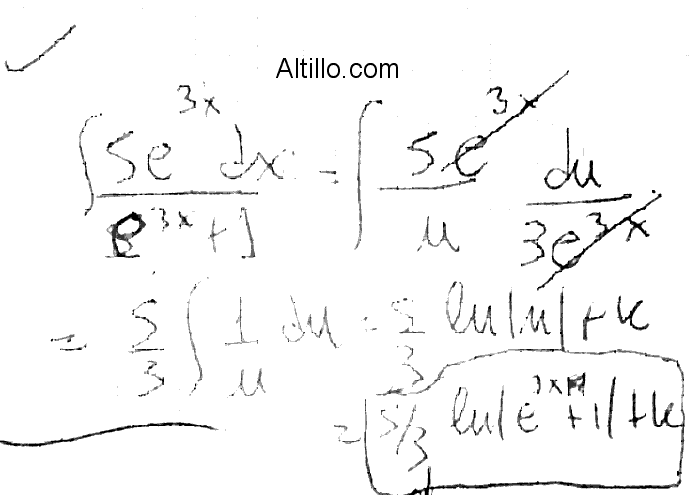 Altillo.com
∫ 5e^{3x} dx / e^{3x}+1 = ∫ 5e^{3x} / u du / 3e^{3x}
= 5/3 ∫ 1/u du = 5/3 ln|u| + k
= 5/3 ln|e^{3x}+1| + k